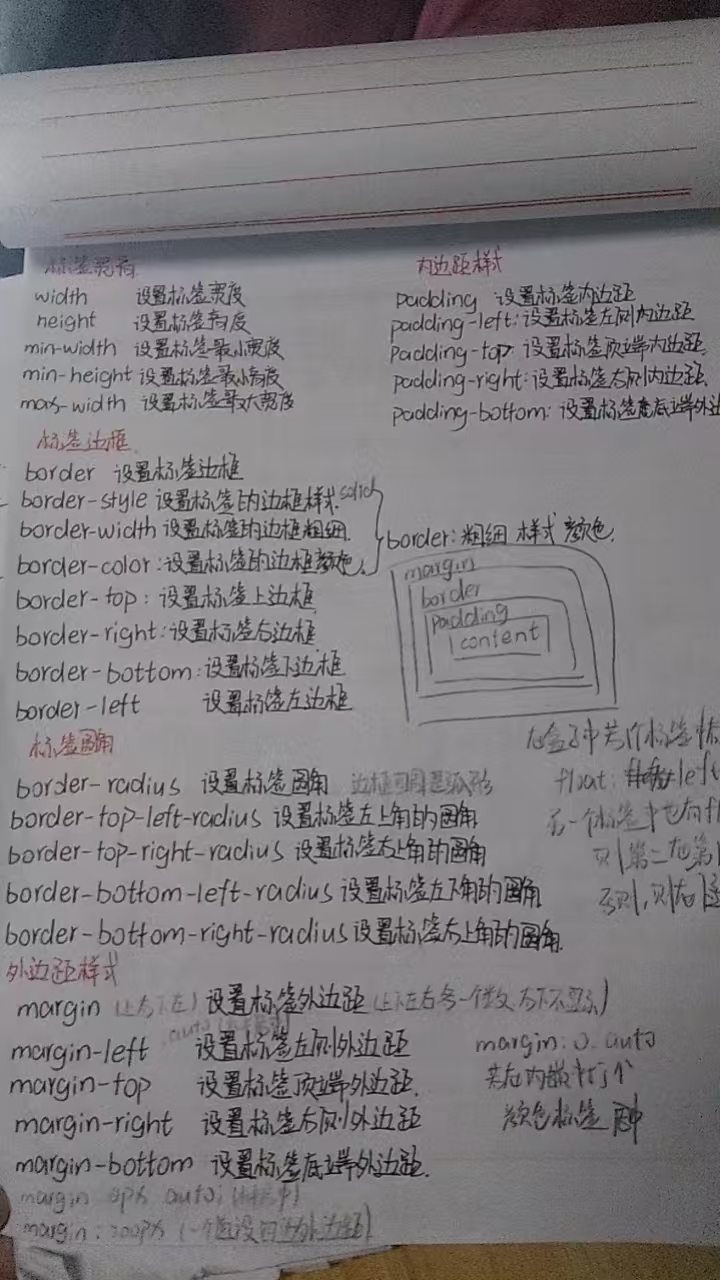 标签宽高
width 设置标签宽度
height 设置标签高度
min-width 设置标签最小宽度
min-height 设置标签最小高度
max-width 设置标签最大宽度
内边距样式
padding 设置标签内边距
padding-left: 设置标签左侧内边距
padding-top: 设置标签顶端内边距
padding-right: 设置标签右侧内边距
padding-bottom: 设置标签底端外边
标签边框
border 设置标签边框
border-style 设置标签的边框样式 solid
border-width 设置标签的边框粗细
border-color: 设置标签的边框颜色
border: 粗细 样式 颜色
border-top: 设置标签上边框
border-right: 设置标签右边框
border-bottom: 设置标签下边框
border-left 设置标签左边框
margin
border
padding
content
标签圆角
border-radius 设置标签圆角
border-top-left-radius 设置标签左上角的圆角
border-top-right-radius 设置标签右上角的圆角
border-bottom-left-radius 设置标签左下角的圆角
border-bottom-right-radius 设置标签右上角的圆角
float: left
外边距样式
margin (上右下左) 设置标签外边距
margin-left auto 设置标签左侧外边距
margin-top 设置标签顶端外边距
margin-right 设置标签右侧外边距
margin-bottom 设置标签底端外边距
margin: 0 auto
颜色标签
margin 0px auto;
margin: 200px